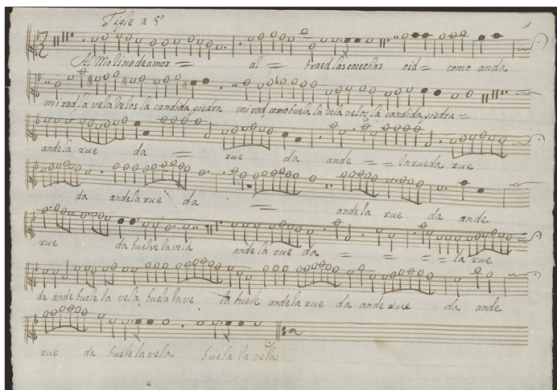 Tiple a 5º
Al Molino de amor = al = traed las cosechas oid = como anda
mirad la vela velos la candida piedra mirad como buela la vela velos la candida piedra =
ande la rue da = rue da ande = = la rueda rue
da ande la rue da = ande la rue da ande
rue da buele la vela ande la rue da = = = = la rue
da ande buele la vela buela la ve la buele ande la rue da ande rue da ande
rue da buele la vela buela la vela